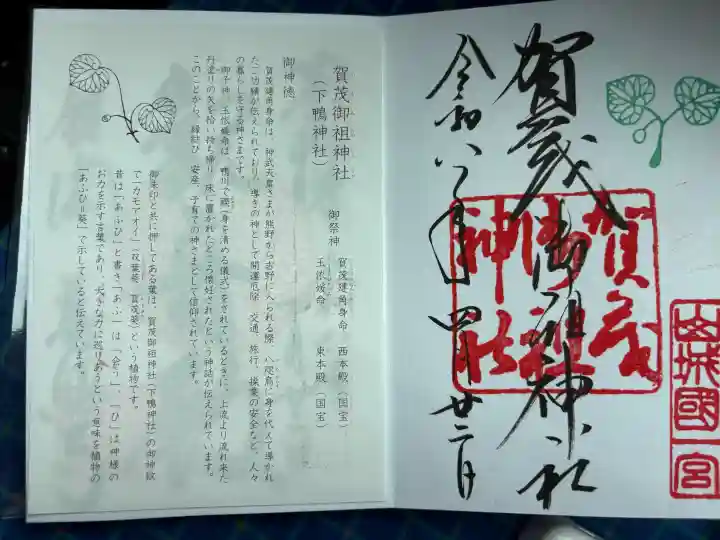 賀茂御祖神社
(下鴨神社)
御祭神 賀茂建角身命 西本殿(国宝)
玉依媛命 東本殿(国宝)
御神徳
賀茂建角身命は、神武天皇さまが熊野から吉野に入られる際、八咫烏に身を代えて導かれ
たご功績が伝えられており、導きの神として開運厄除、交通、旅行、操業の安全など、人々
の暮らしを守る神さまです。
御子神、玉依媛命は、鴨川で禊(身を清める儀式)をされているときに、上流より流れ来た
丹塗りの矢を拾い持ち帰り、床に置かれたところ懐妊されたという神話が伝えられています。
このことから、縁結び、安産、子育ての神さまとして信仰されています。
御朱印と共に押してある葉は、賀茂御祖神社(下鴨神社)の御神紋
で「カモアオイ」(双葉葵、賀茂葵)という植物です。
昔は「あふひ」と書き「あふ」は「会う」、「ひ」は神様の
お力を示す言葉であり、大きな力に巡りあうという意味を植物の
「あふひ=葵」で示していると伝えています。
山城國一宮
賀茂御祖神社
賀茂御祖神社
令和八年四月廿二日